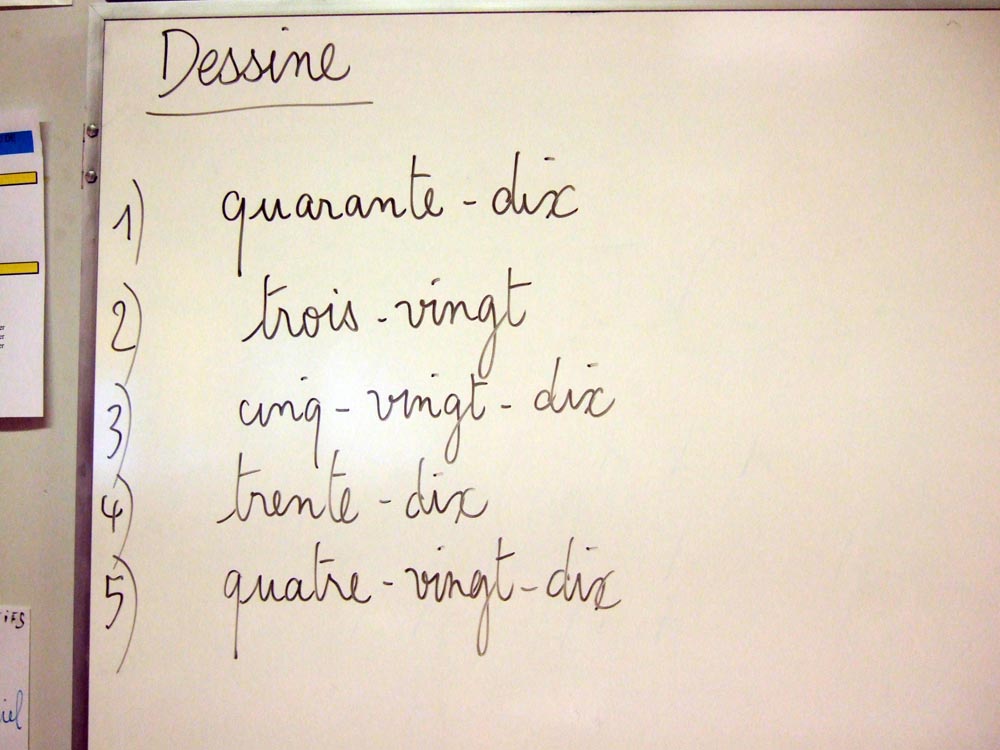 Dessine
1) quarante-dix
2) trois-vingt
3) cinq-vingt-dix
4) trente-dix
5) quatre-vingt-dix